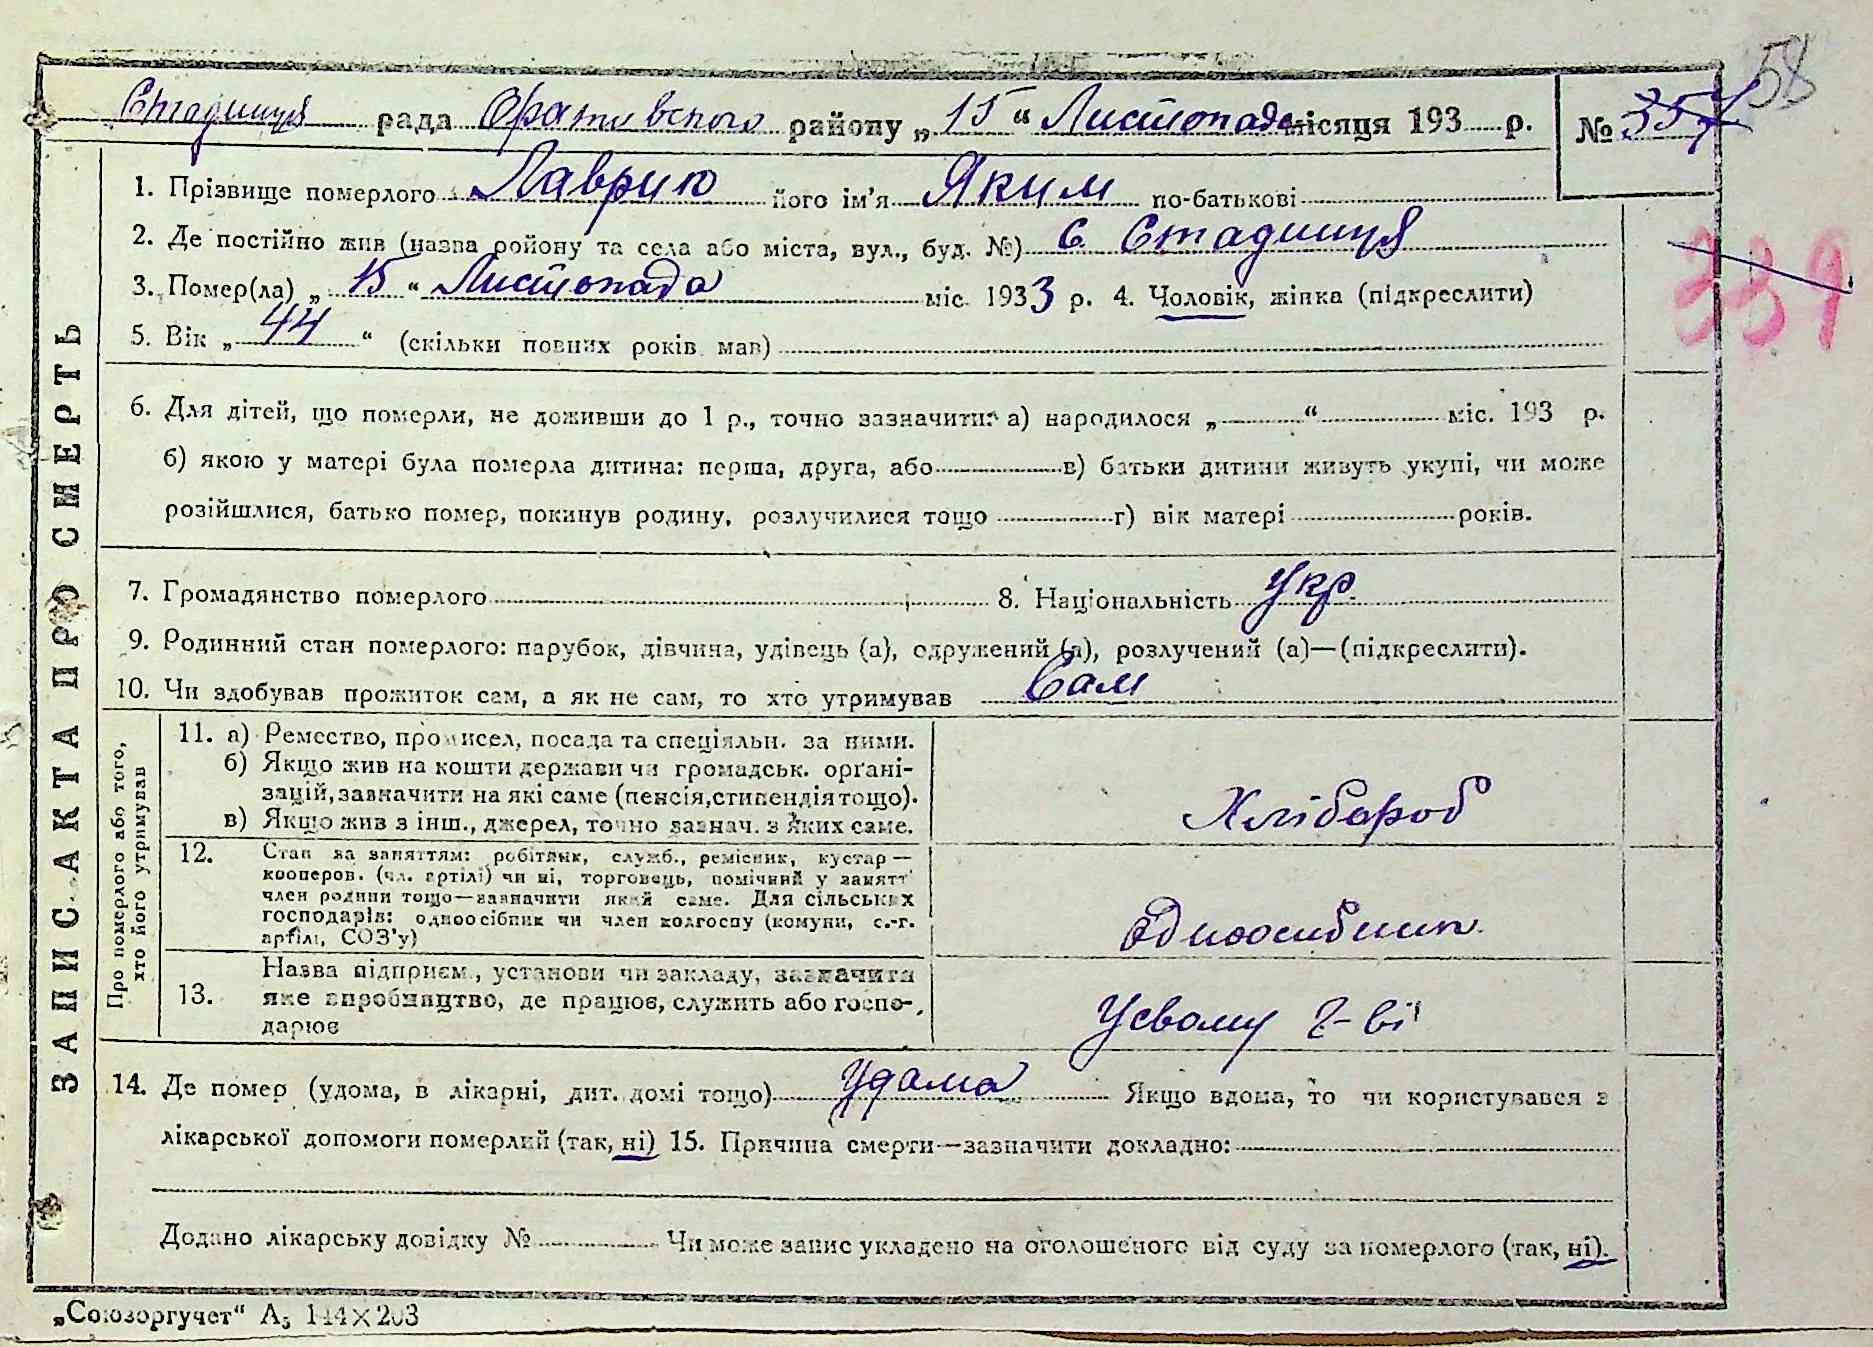 58
Стадниця рада Оратівського району „ 15 “ Листопада місяця 193 р. № 357
1. Прізвище померлого Лаврик його ім'я Яким по-батькові
2. Де постійно жив (назва ройону та села або міста, вул., буд. №) С. Стадниця
3. Помер(ла) „ 15 “ Листопада міс. 1933 р. 4. Чоловік, жінка (підкреслити)
339
5. Вік „ 44 “ (скільки повних років мав)
6. Для дітей, що померли, не доживши до 1 р., точно зазначити: а) народилося „ “ міс. 193 р.
б) якою у матері була померла дитина: перша, друга, або в) батьки дитини живуть укупі, чи може
розійшлися, батько помер, покинув родину, розлучилися тощо г) вік матері років.
7. Громадянство померлого 8. Національність Укр.
9. Родинний стан померлого: парубок, дівчина, удівець (а), одружений (а), розлучений (а)—(підкреслити).
10. Чи здобував прожиток сам, а як не сам, то хто утримував Сам
ЗАПИС АКТА ПРО СМЕРТЬ
Про померлого або того,
хто його утримував
11. а) Ремество, промисел, посада та спеціяльн. за ними.
б) Якщо жив на кошти держави чи громадськ. орґані-
зацій, зазначити на які саме (пенсія, стипендія тощо).
в) Якщо жив з інш., джерел, точно зазнач. з яких саме.
Хлібороб
12. Стан за заняттям: робітник, служб., ремісник, кустар —
кооперов. (чл. артілі) чи ні, торговець, помічний у занятт
член родини тощо—зазначити який саме. Для сільських
господарів: одноосібник чи член колгоспу (комуни, с.-г.
артілі, СОЗ'у)
Одноосибник
13. Назва підприєм., установи чи закладу, зазначити
яке виробництво, де працює, служить або госпо-
дарює
Усвому г-ві
14. Де помер (удома, в лікарні, дит. домі тощо) Удома Якщо вдома, то чи користувався з
лікарської допомоги померлий (так, ні) 15. Причина смерти—зазначити докладно:
Додано лікарську довідку № Чи може запис укладено на оголошеного від суду за померлого (так, ні).
„Союзоргучет“ А5 144×203